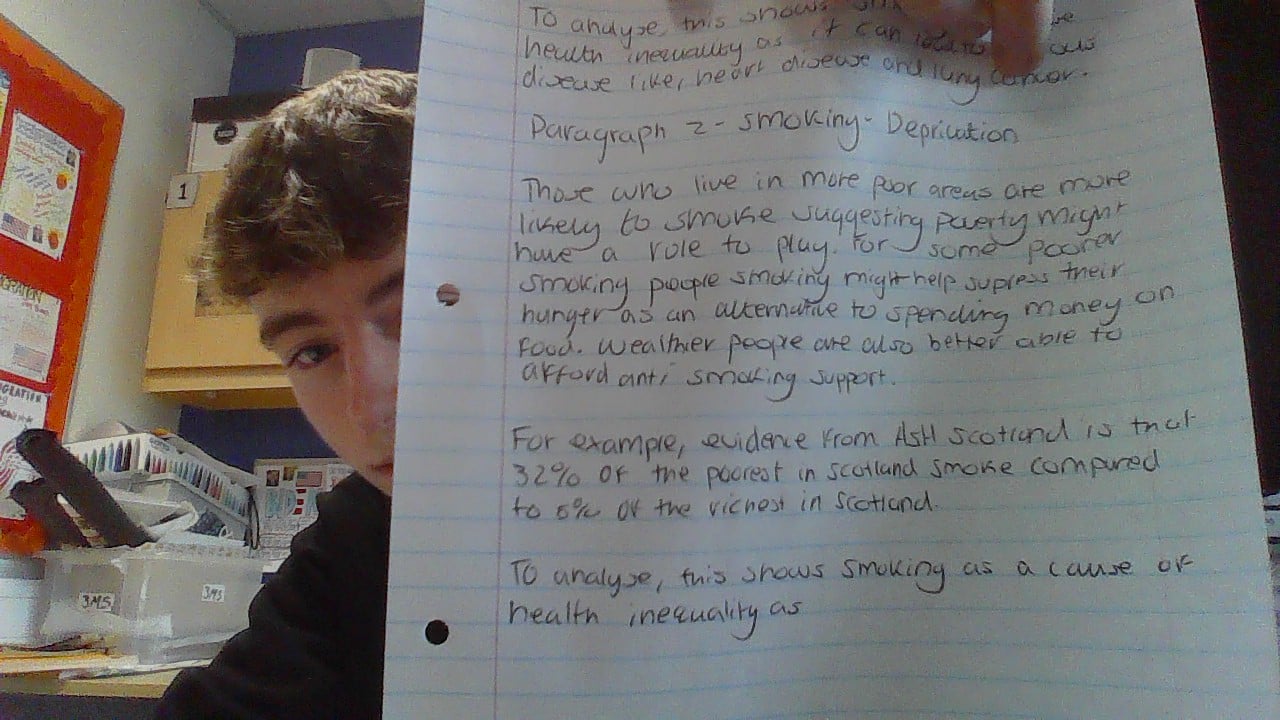 To analyse, this shows
health inequality as it can
disease like, heart disease and lung cancer.
Paragraph 2 - smoking - Deprivation
Those who live in more poor areas are more
likely to smoke suggesting poverty might
have a role to play. For some poorer
smoking people smoking might help supress their
hunger as an alternative to spending money on
food. Wealthier people are also better able to
afford anti smoking support.
For example, evidence from ASH Scotland is that
32% of the poorest in Scotland smoke compared
to 6% of the richest in Scotland.
To analyse, this shows smoking as a cause of
health inequality as
1
3MS
3MS